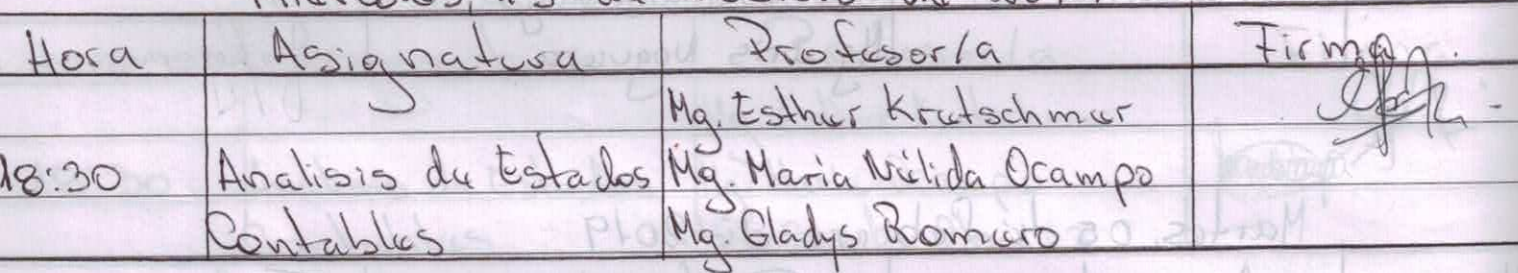 Hora Asignatura Profesor/a Firma.
Mg. Esther Kretschmer
18:30 Analisis de Estados Mg. Maria Nélida Ocampo
Contables Mg. Gladys Romero